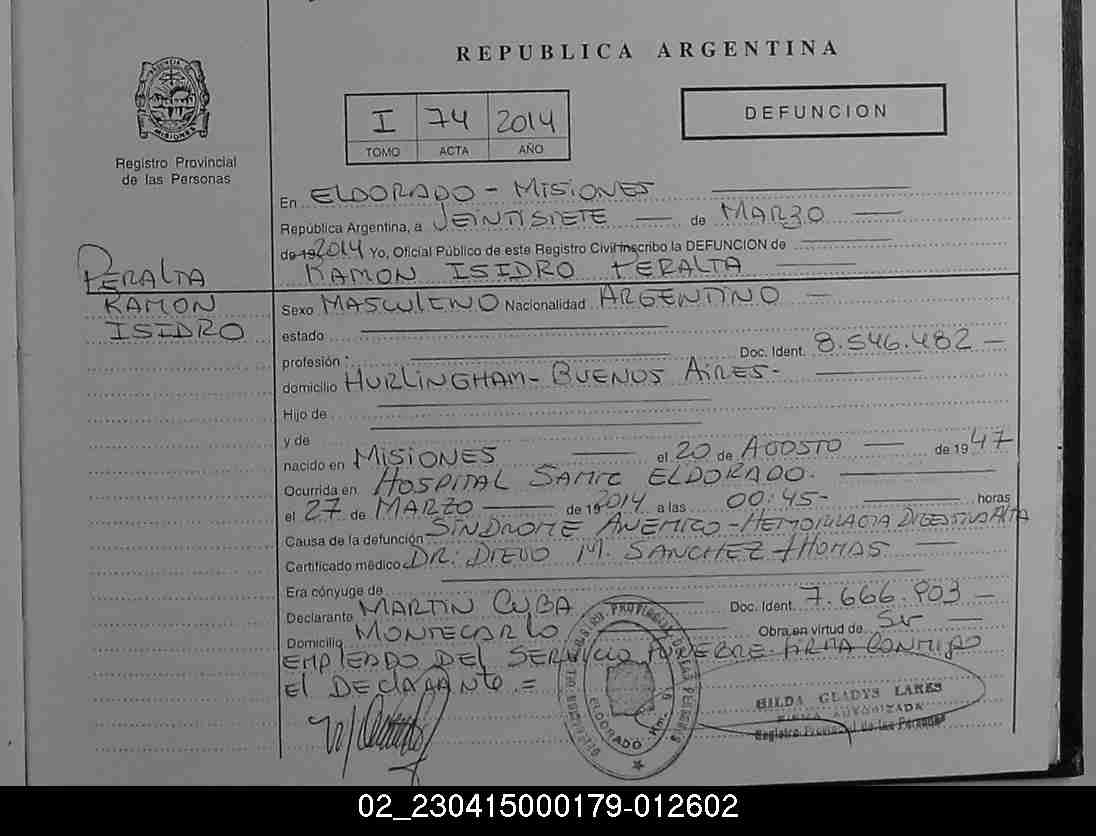 REPUBLICA ARGENTINA
PROVINCIA DE
MISIONES
Registro Provincial
de las Personas
I 74 2014
TOMO ACTA AÑO
DEFUNCION
En ELDORADO - MISIONES
República Argentina, a VEINTISIETE — de MARZO —
de 19 2014 Yo, Oficial Público de este Registro Civil inscribo la DEFUNCION de
PERALTA RAMON ISIDRO PERALTA
RAMON Sexo MASCULINO Nacionalidad ARGENTINO —
ISIDRO estado
profesión Doc. Ident. 8.546.482 —
domicilio HURLINGHAM - BUENOS AIRES -
Hijo de
y de
nacido en MISIONES — el 20 de AGOSTO — de 1947
Ocurrida en HOSPITAL SAMIC ELDORADO.
el 27 de MARZO — de 19 2014 a las 00:45 - horas
Causa de la defunción SINDROME ANEMICO - HEMORRAGIA DIGESTIVA ALTA
Certificado médico DR. DIEGO M. SANCHEZ THOMAS —
Era cónyuge de
Declarante MARTIN CUBA Doc. Ident. 7.666.903 —
Domicilio MONTECARLO Obra en virtud de Sr —
EMPLEADO DEL SERVICIO FUNEBRE. FIRMA CONMIGO
El DEClARANte. =
REGISTRO PROVINCIAL DE LAS PERSONAS
ELDORADO Km.
HILDA GLADYS LARES
FIRMA AUTORIZADA
Registro Provincial de las Personas
02_230415000179-012602